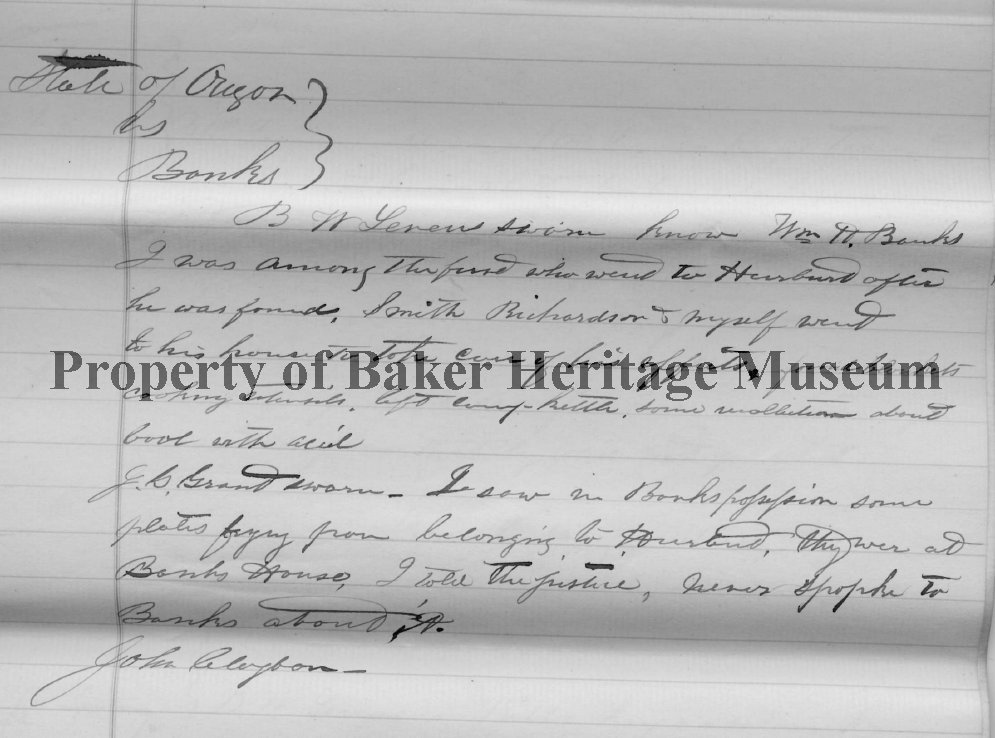 State of Oregon
vs
Banks
B W Levens sworn know Wm H. Banks
I was among the first who went to Hurburd after
he was found. Smith Richardson & myself went
to his house to take care of his effects,
Property of Baker Heritage Museum
cooking utensils, left camp-kettle, some recollection about
boot with acid
J. S. Grant sworn - I saw in Banks possession some
plates frying pan belonging to Hurburd, they wer at
Banks House, I told the justice, never spopke to
Banks about it.
John Claybon -